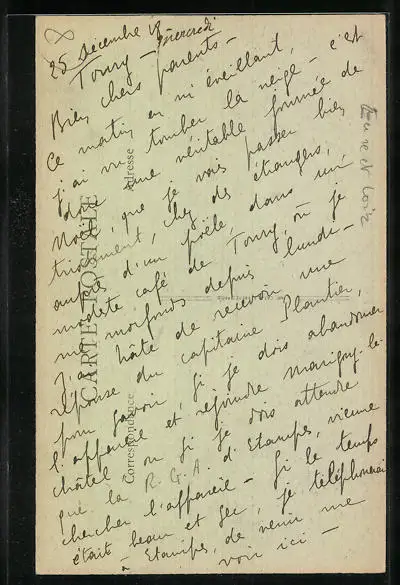 25 Décembre 18
Toury - Mercredi
Bien chers parents -
Ce matin en m'éveillant,
j'ai vu tomber la neige - c'est
donc une véritable journée de
Noël, que je vais passer bien
tristement, chez des étrangers,
auprès d'un poële, dans un
modeste café de Toury, où je
me morfonds depuis lundi -
J'ai hâte de recevoir une
réponse du capitaine Plantier,
pour savoir, si je dois abandonner
l'appareil et rejoindre Marigny-le-
châtel - ou si je dois attendre
que la R.G.A. d'Etampes, vienne
chercher l'appareil - Si le temps
était beau et sec, je téléphonerai
à Etampes, de venir me
voir ici -
Eure et Loir
CARTE POSTALE
Correspondance
Adresse